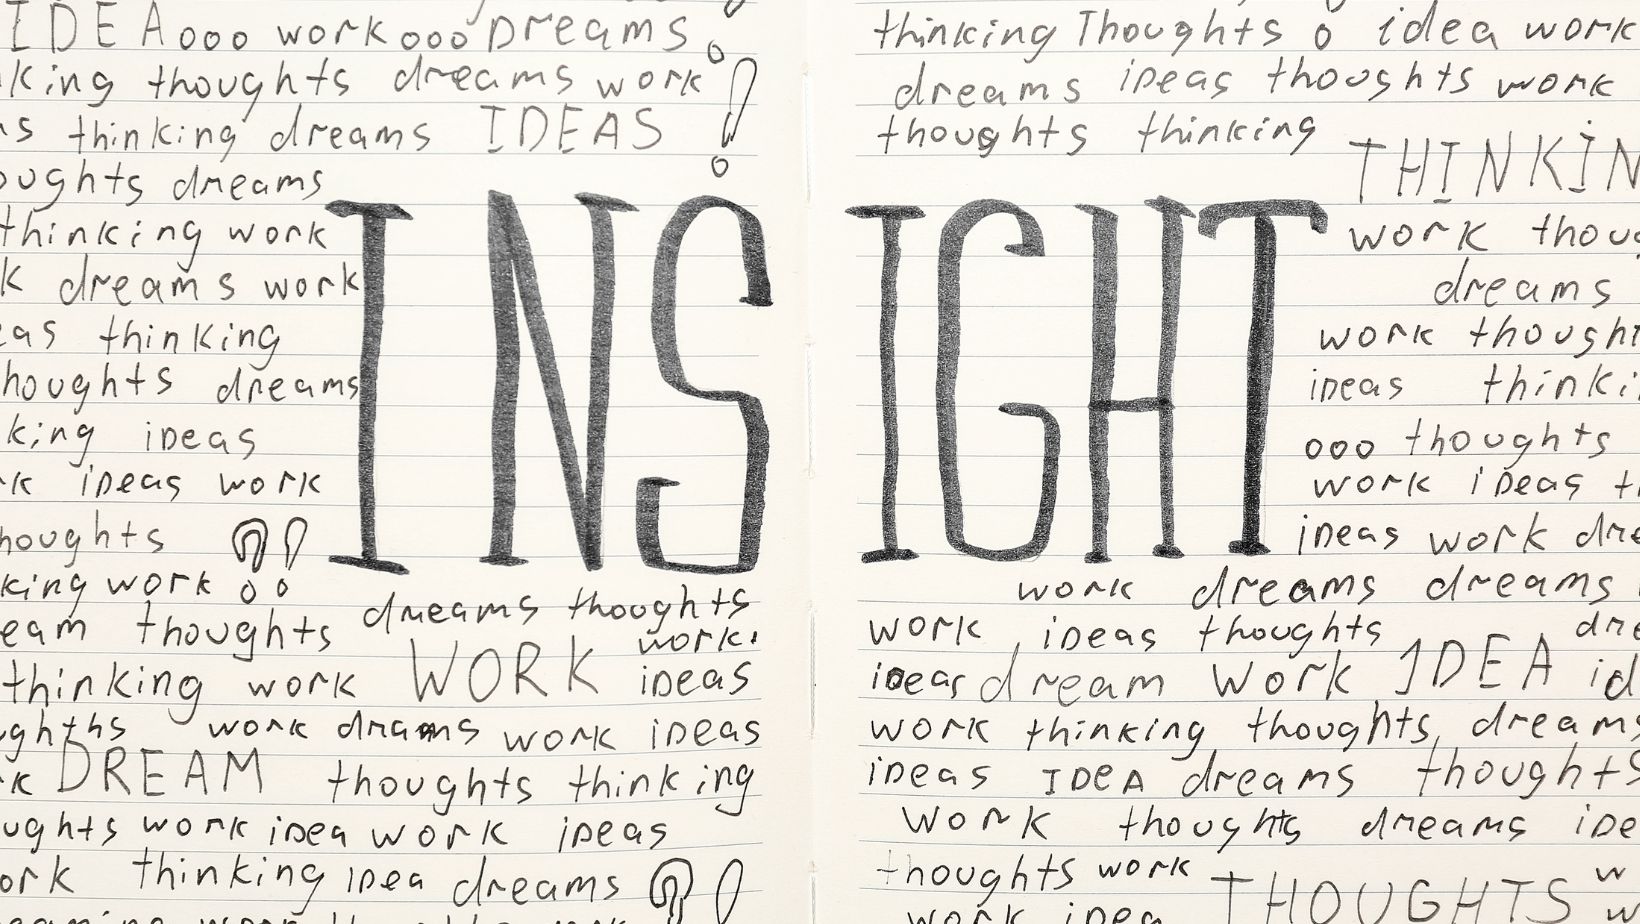 IDEA ooo work ooo Dreams
thoughts dreams work!
thinking dreams IDEAS
dreams
thinking work
dreams work
thinking
thoughts dreams
ideas
ideas work
thoughts ?!
work
dreams thoughts
thoughts
work!
thinking work WORK ideas
work drams work ideas
DREAM thoughts thinking
work idea work ideas
thinking idea dreams ?!
INSIGHT
thinking Thoughts o idea work
dreams ideas thoughts work
thoughts thinking
THINKIN
work thoug
dreams
work thought
ideas thinki
ooo thoughts
work ideas
ideas work dre
work dreams dreams
work, ideas thoughts
dre
ideas dream Work IDEA id
work thinking thoughts, dreams
ideas IDEA dreams thoughts
Work thoughts dreams ide
thoughts work
THOUGHTS
work idea